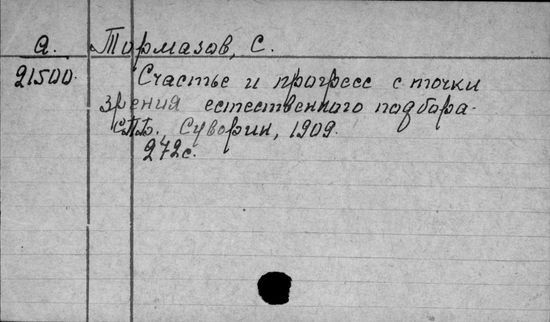 а. Тормазов, С.
21500. Счастье и прогресс с точки
зрения естественного подбора.
СПБ. Суворин, 1909.
272с.